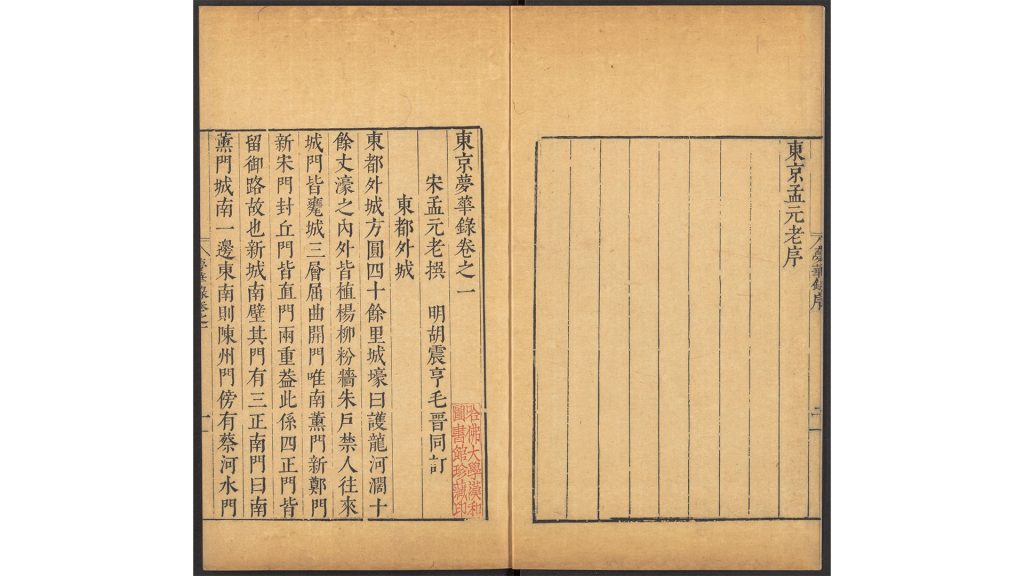 夢華錄序
東京孟元老序
東京夢華錄卷之一
宋孟元老撰 明胡震亨毛晉同訂
哈佛大學漢和
圖書館珍藏印
東都外城
東都外城方圓四十餘里城壕曰護龍河濶十
餘丈濠之內外皆植楊柳粉牆朱戶禁人往來
城門皆甕城三層屈曲開門唯南薰門新鄭門
新宋門封丘門皆直門兩重葢此係四正門皆
留御路故也新城南壁其門有三正南門曰南
薰門城南一邊東南則陳州門傍有蔡河水門